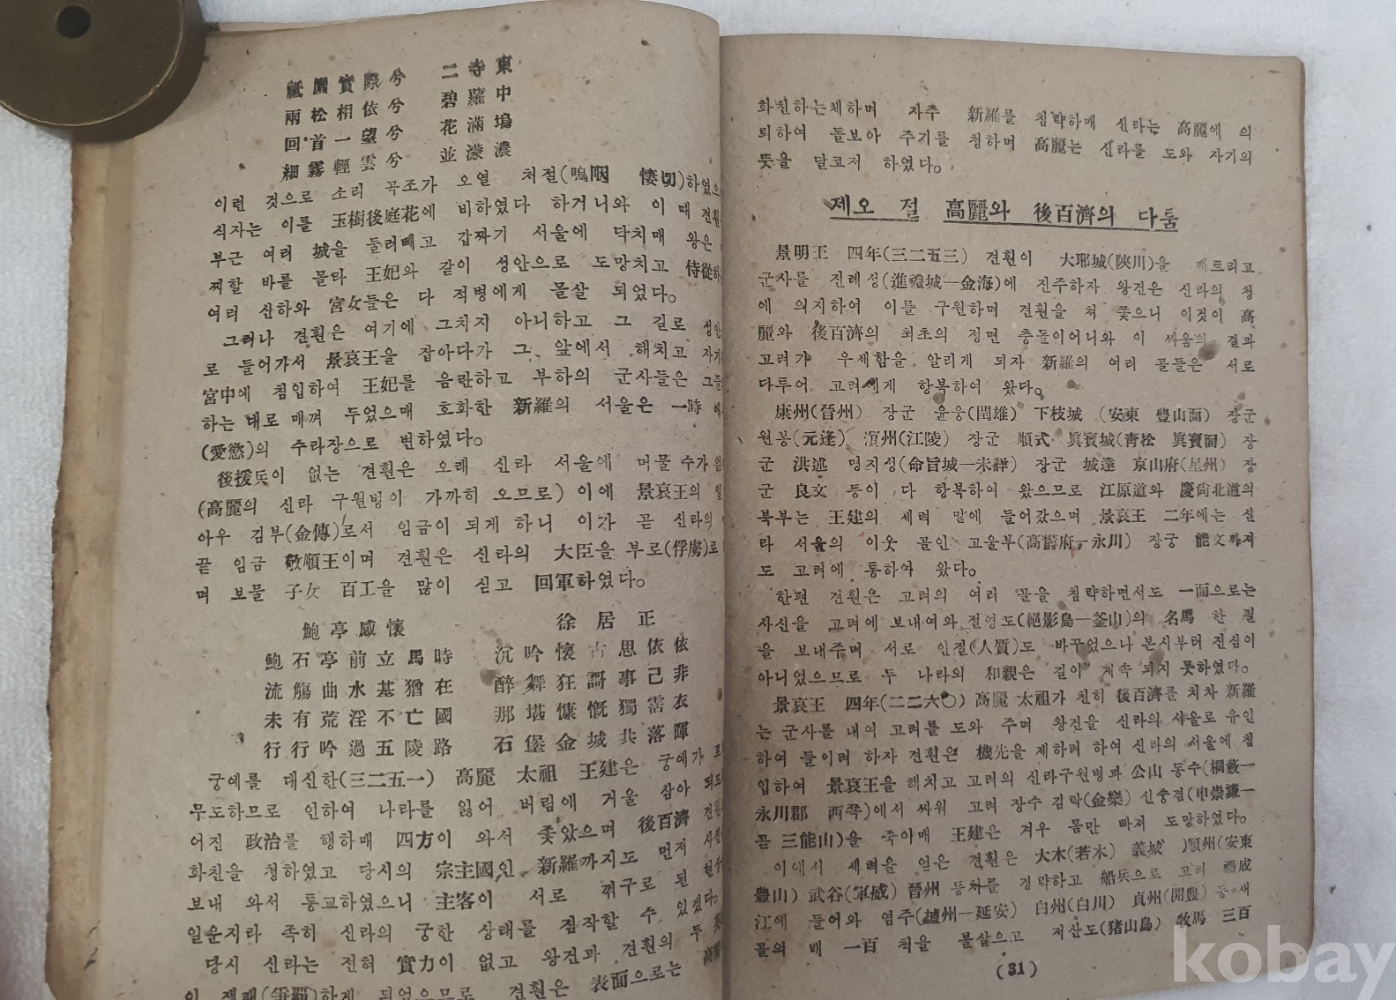 祗園實際兮 二寺東
兩松相依兮 碧羅中
回首一望兮 花滿塢
細霧輕雲兮 並濛濃
이런 것으로 소리 곡조가 오열 처절(嗚咽 悽切)하였으
식자는 이를 玉樹後庭花에 비하였다 하거니와 이 때 견훤
부근 여러 城을 둘러빼고 갑짜기 서울에 닥치매 왕은
찌할 바를 몰라 王妃와 같이 성안으로 도망치고 侍從하
여러 신하와 宮女들은 다 적병에게 몰살 되었다。
그러나 견훤은 여기에 그치지 아니하고 그 길로 성안
로 들어가서 景哀王을 잡아다가 그 앞에서 해치고 자기
宮中에 침입하여 王妃를 음란하고 부하의 군사들은 그들
하는 대로 매껴 두었으매 호화한 新羅의 서울은 一時
(愛慾)의 수라장으로 변하였다。
後援兵이 없는 견훤은 오래 신라 서울에 머물 수가 없
(高麗의 신라 구원빙이 가까히 오므로) 이에 景哀王의
아우 김부(金傅)로서 임금이 되게 하니 이가 곧 신라의
끝 임금 敬順王이며 견훤은 신라의 大臣을 부로(俘虜)로
며 보물 子女 百工을 많이 싣고 回軍하였다。
鮑亭感懷 徐居正
鮑石亭前立馬時 沉吟懷古思依依
流觴曲水基猶在 醉舞狂謌事己非
未有荒淫不亡國 那堪慷慨獨霑衣
行行吟過五陵路 石堡金城共落暉
궁예를 대신한(三二五一) 高麗 太祖 王建은 궁예가
무도하므로 인하여 나라를 잃어 버림에 거울 삼아
어진 政治를 행하매 四方이 와서 좇았으며 後百濟 견훤
화친을 청하였고 당시의 宗主國인 新羅까지도 먼저 사신
보내 와서 통교하였으니 主客이 서로 꺾구로 된 현상
일운지라 족히 신라의 궁한 상태를 짐작할 수 있겠다。
당시 신라는 전혀 實力이 없고 왕건과 견훤의 두
이 쟁패(爭覇)하게 되었으므로 견훤은 表面으로는 高麗
화친하는체하며 자주 新羅를 침략하매 신라는 高麗에 의
뢰하여 돌보아 주기를 청하며 高麗는 신라를 도와 자기의
뜻을 달코저 하였다。
제오 절 高麗와 後百濟의 다툼
景明王 四年(三二五三) 견훤이 大耶城(陜川)을 깨트리고
군사를 진례성(進禮城—金海)에 진주하자 왕건은 신라의 청
에 의지하여 이를 구원하며 견훤을 쳐 쫓으니 이것이 高
麗와 後百濟의 최초의 정면 충돌이어니와 이 싸움의 결과
고려가 우세함을 알리게 되자 新羅의 여러 골들은 서로
다투어 고려에게 항복하여 왔다。
康州(晉州) 장군 윤웅(閏雄) 下枝城 (安東 豊山面) 장군
원봉(元逢) 溟州(江陵) 장군 順式 眞寶城(靑松 眞寶面) 장
군 洪述 명지성(命旨城—未詳) 장군 城達 京山府(星州) 장
군 良文 등이 다 항복하여 왔으므로 江原道와 慶尙北道의
북부는 王建의 세력 밑에 들어갔으며 景哀王 二年에는 신
라 서울의 이웃 골인 고울부(高鬱府—永川) 장궁 能文까지
도 고려에 통하여 왔다。
한편 견훤은 고려의 여러 골을 침략하면서도 一面으로는
사신을 고려에 보내여와 절영도(絕影島—釜山)의 名馬 한 필
을 보내주며 서로 인질(人質)도 바꾸었으나 본시부터 진심이
아니었으므로 두 나라의 和親은 길이 계속 되지 못하였다。
景哀王 四年(二二六〇) 高麗 太祖가 친히 後百濟를 치자 新羅
는 군사를 내여 고려를 도와 주며 왕건을 신라의 서울로 유인
하여 들이려 하자 견훤은 機先을 제하려 하여 신라의 서울에 침
입하여 景哀王을 해치고 고려의 신라구원병과 公山 동수(桐藪—
永川郡 西쪽)에서 싸워 고려 장수 김락(金樂) 신숭겸(申崇謙—
곧 三能山)을 죽이매 王建은 겨우 몸만 빠져 도망하였다。
이에서 세력을 얻은 견훤은 大木(若木) 義城 順州(安東
豊山) 武谷(軍威) 晉州 등지를 경략하고 船兵으로 고려 禮成
江에 들어와 염주(鹽州—延安) 白州(白川) 貞州(開豊) 등 세
골의 배 一百 척을 불살으고 저산도(猪山島) 牧馬 三百
(31)
kobay